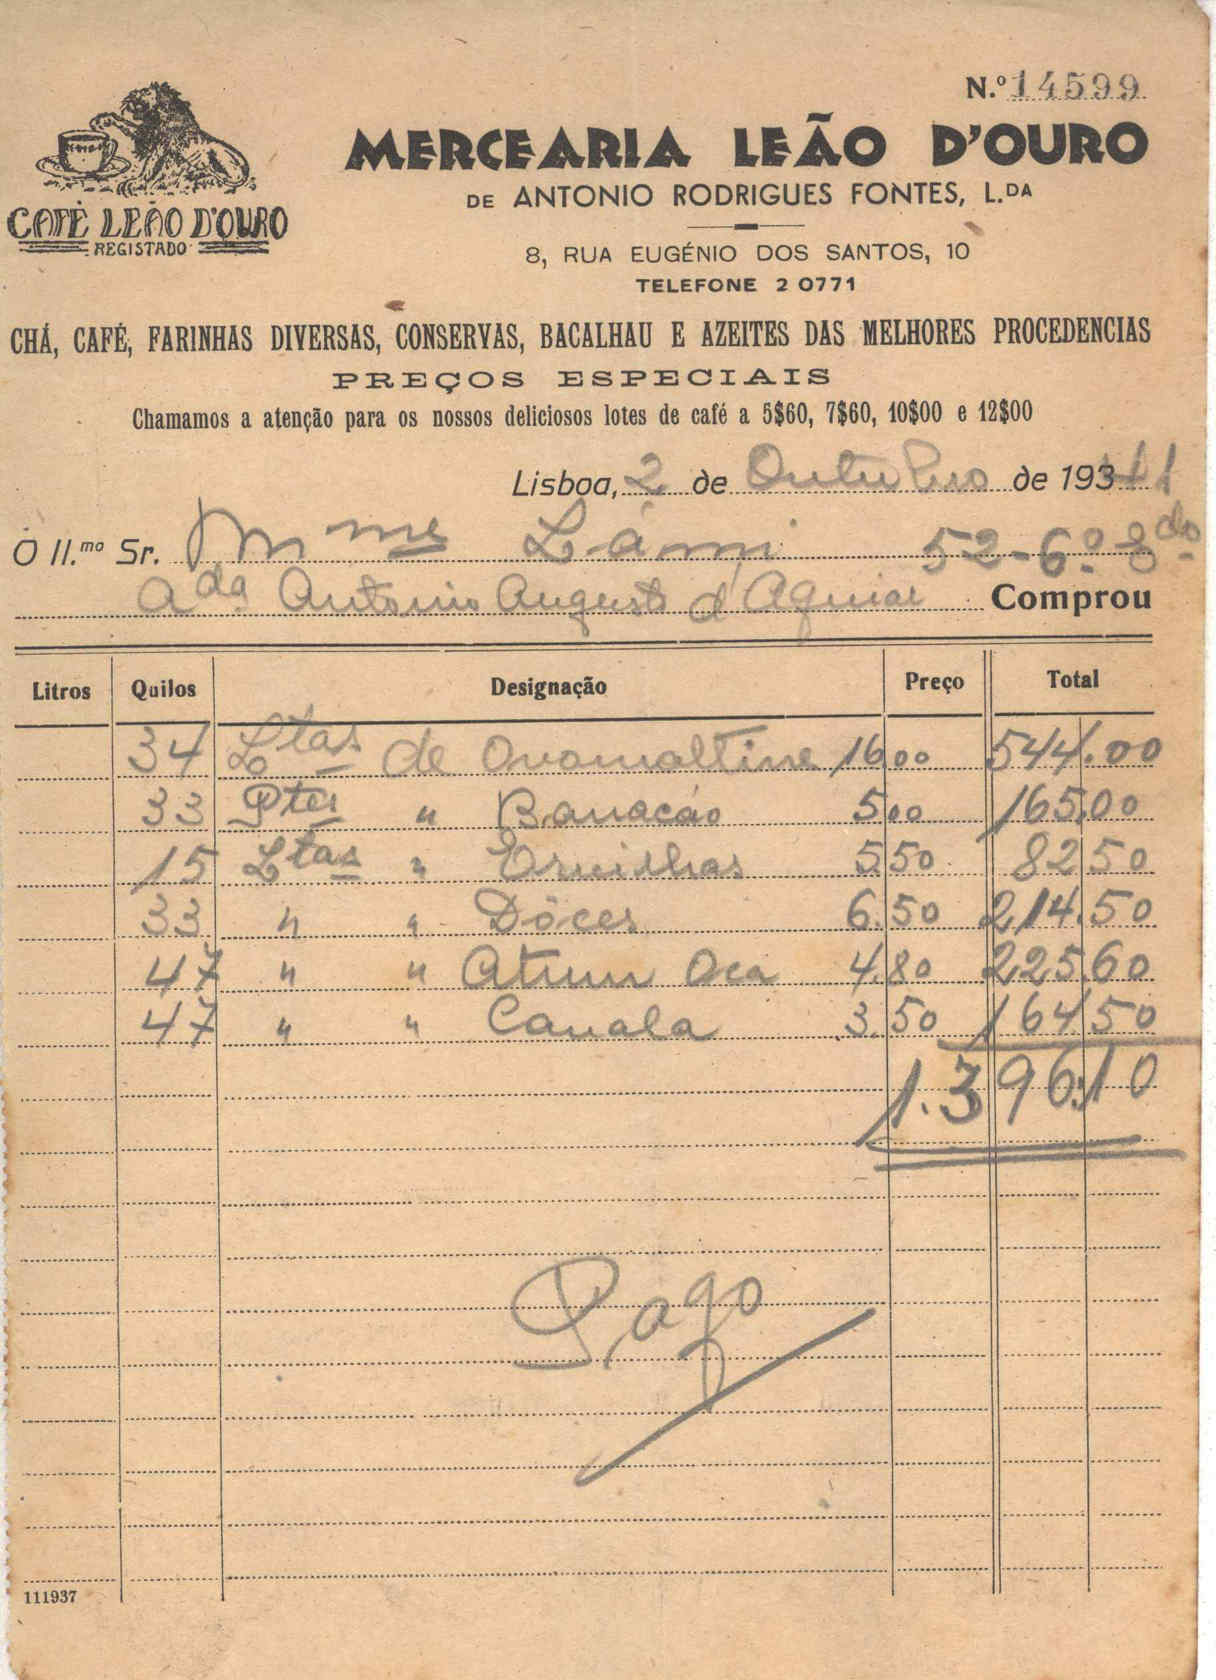 N.º 14599
MERCEARIA LEÃO D'OURO
DE ANTONIO RODRIGUES FONTES, L.DA
CAFÉ LEÃO D'OURO
REGISTADO
8, RUA EUGÉNIO DOS SANTOS, 10
TELEFONE 2 0771
CHÁ, CAFÉ, FARINHAS DIVERSAS, CONSERVAS, BACALHAU E AZEITES DAS MELHORES PROCEDENCIAS
PREÇOS ESPECIAIS
Chamamos a atenção para os nossos deliciosos lotes de café a 5$60, 7$60, 10$00 e 12$00
Lisboa, 2 de Outubro de 19341
O Il.mo Sr. Mme Lámi 52-6º
Ada Antonio Augusto d'Aguiar Comprou
Litros Quilos Designação Preço Total
34 Ltas de Ovomaltine 16 00 544.00
33 Ptes " Banacáo 5 00 165.00
15 Ltas " Ervilhas 5 50 82 50
33 " " Dôces 6.50 214.50
47 " " Atum Oca 4.80 225.60
47 " " Cavala 3.50 164 50
1.396.10
Pago
111937